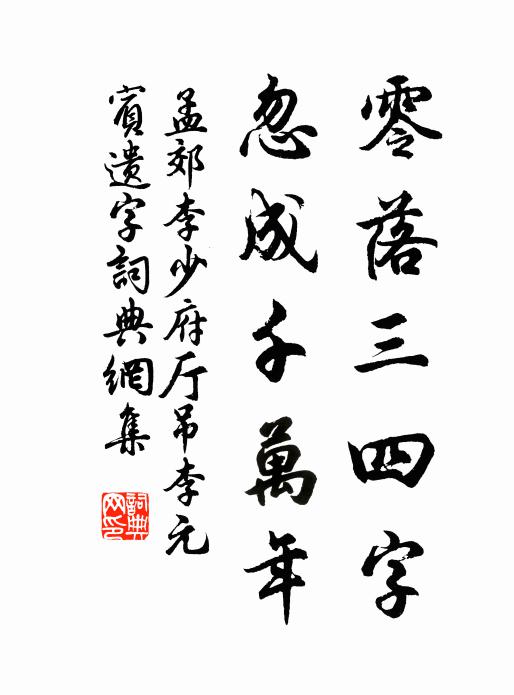 零落三四字
忽成千萬年
孟郊李少府厅吊李元
賓遺字詞典網集
詞典
网印